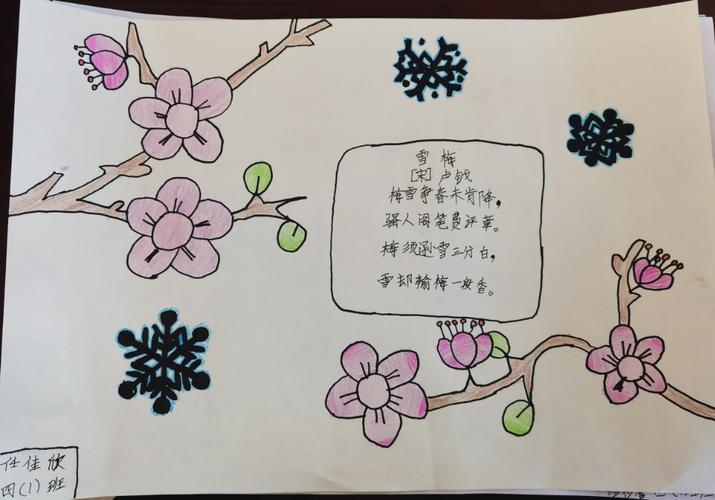 雪梅
[宋]卢钺
梅雪争春未肯降，
骚人阁笔费评章。
梅须逊雪三分白，
雪却输梅一段香。
任佳欣
四(1)班